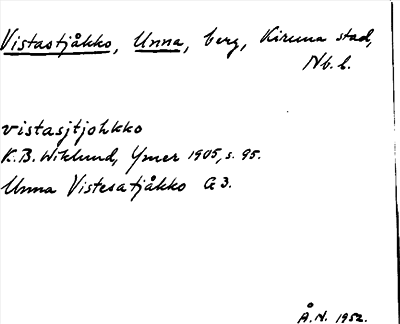 Vistastjåkko, Unna, berg, Kiruna stad,
Nb. l.
vistasjtjohkko
K.B. Wiklund, Ymer 1905, s. 95.
Unna Vistesatjåkko G3.
Å.N. 1952.